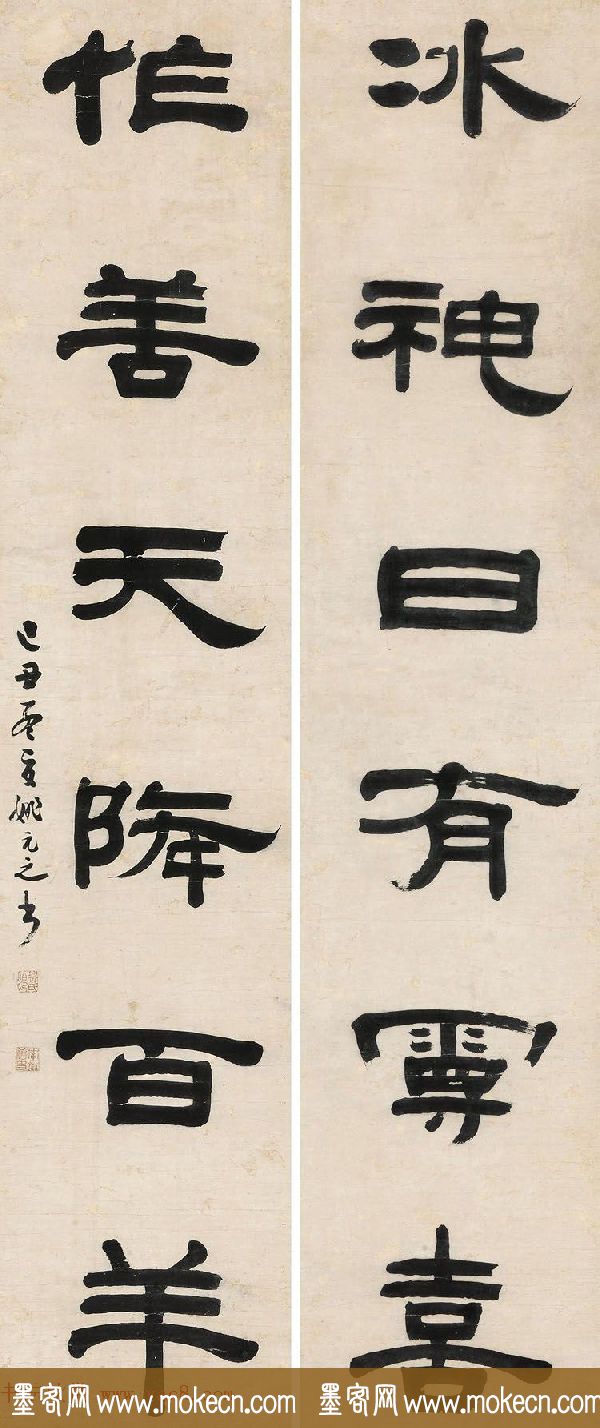 冰神日有喜
作善天降百羊
己丑至姚元之書
墨客网 www.mokecn.com 墨客网 www.mokecn.com